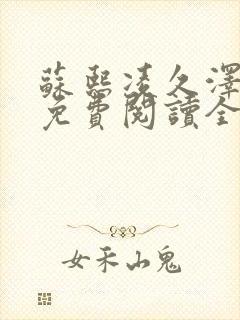 蘇熙凌久澤
免費閱讀全
女禾山鬼